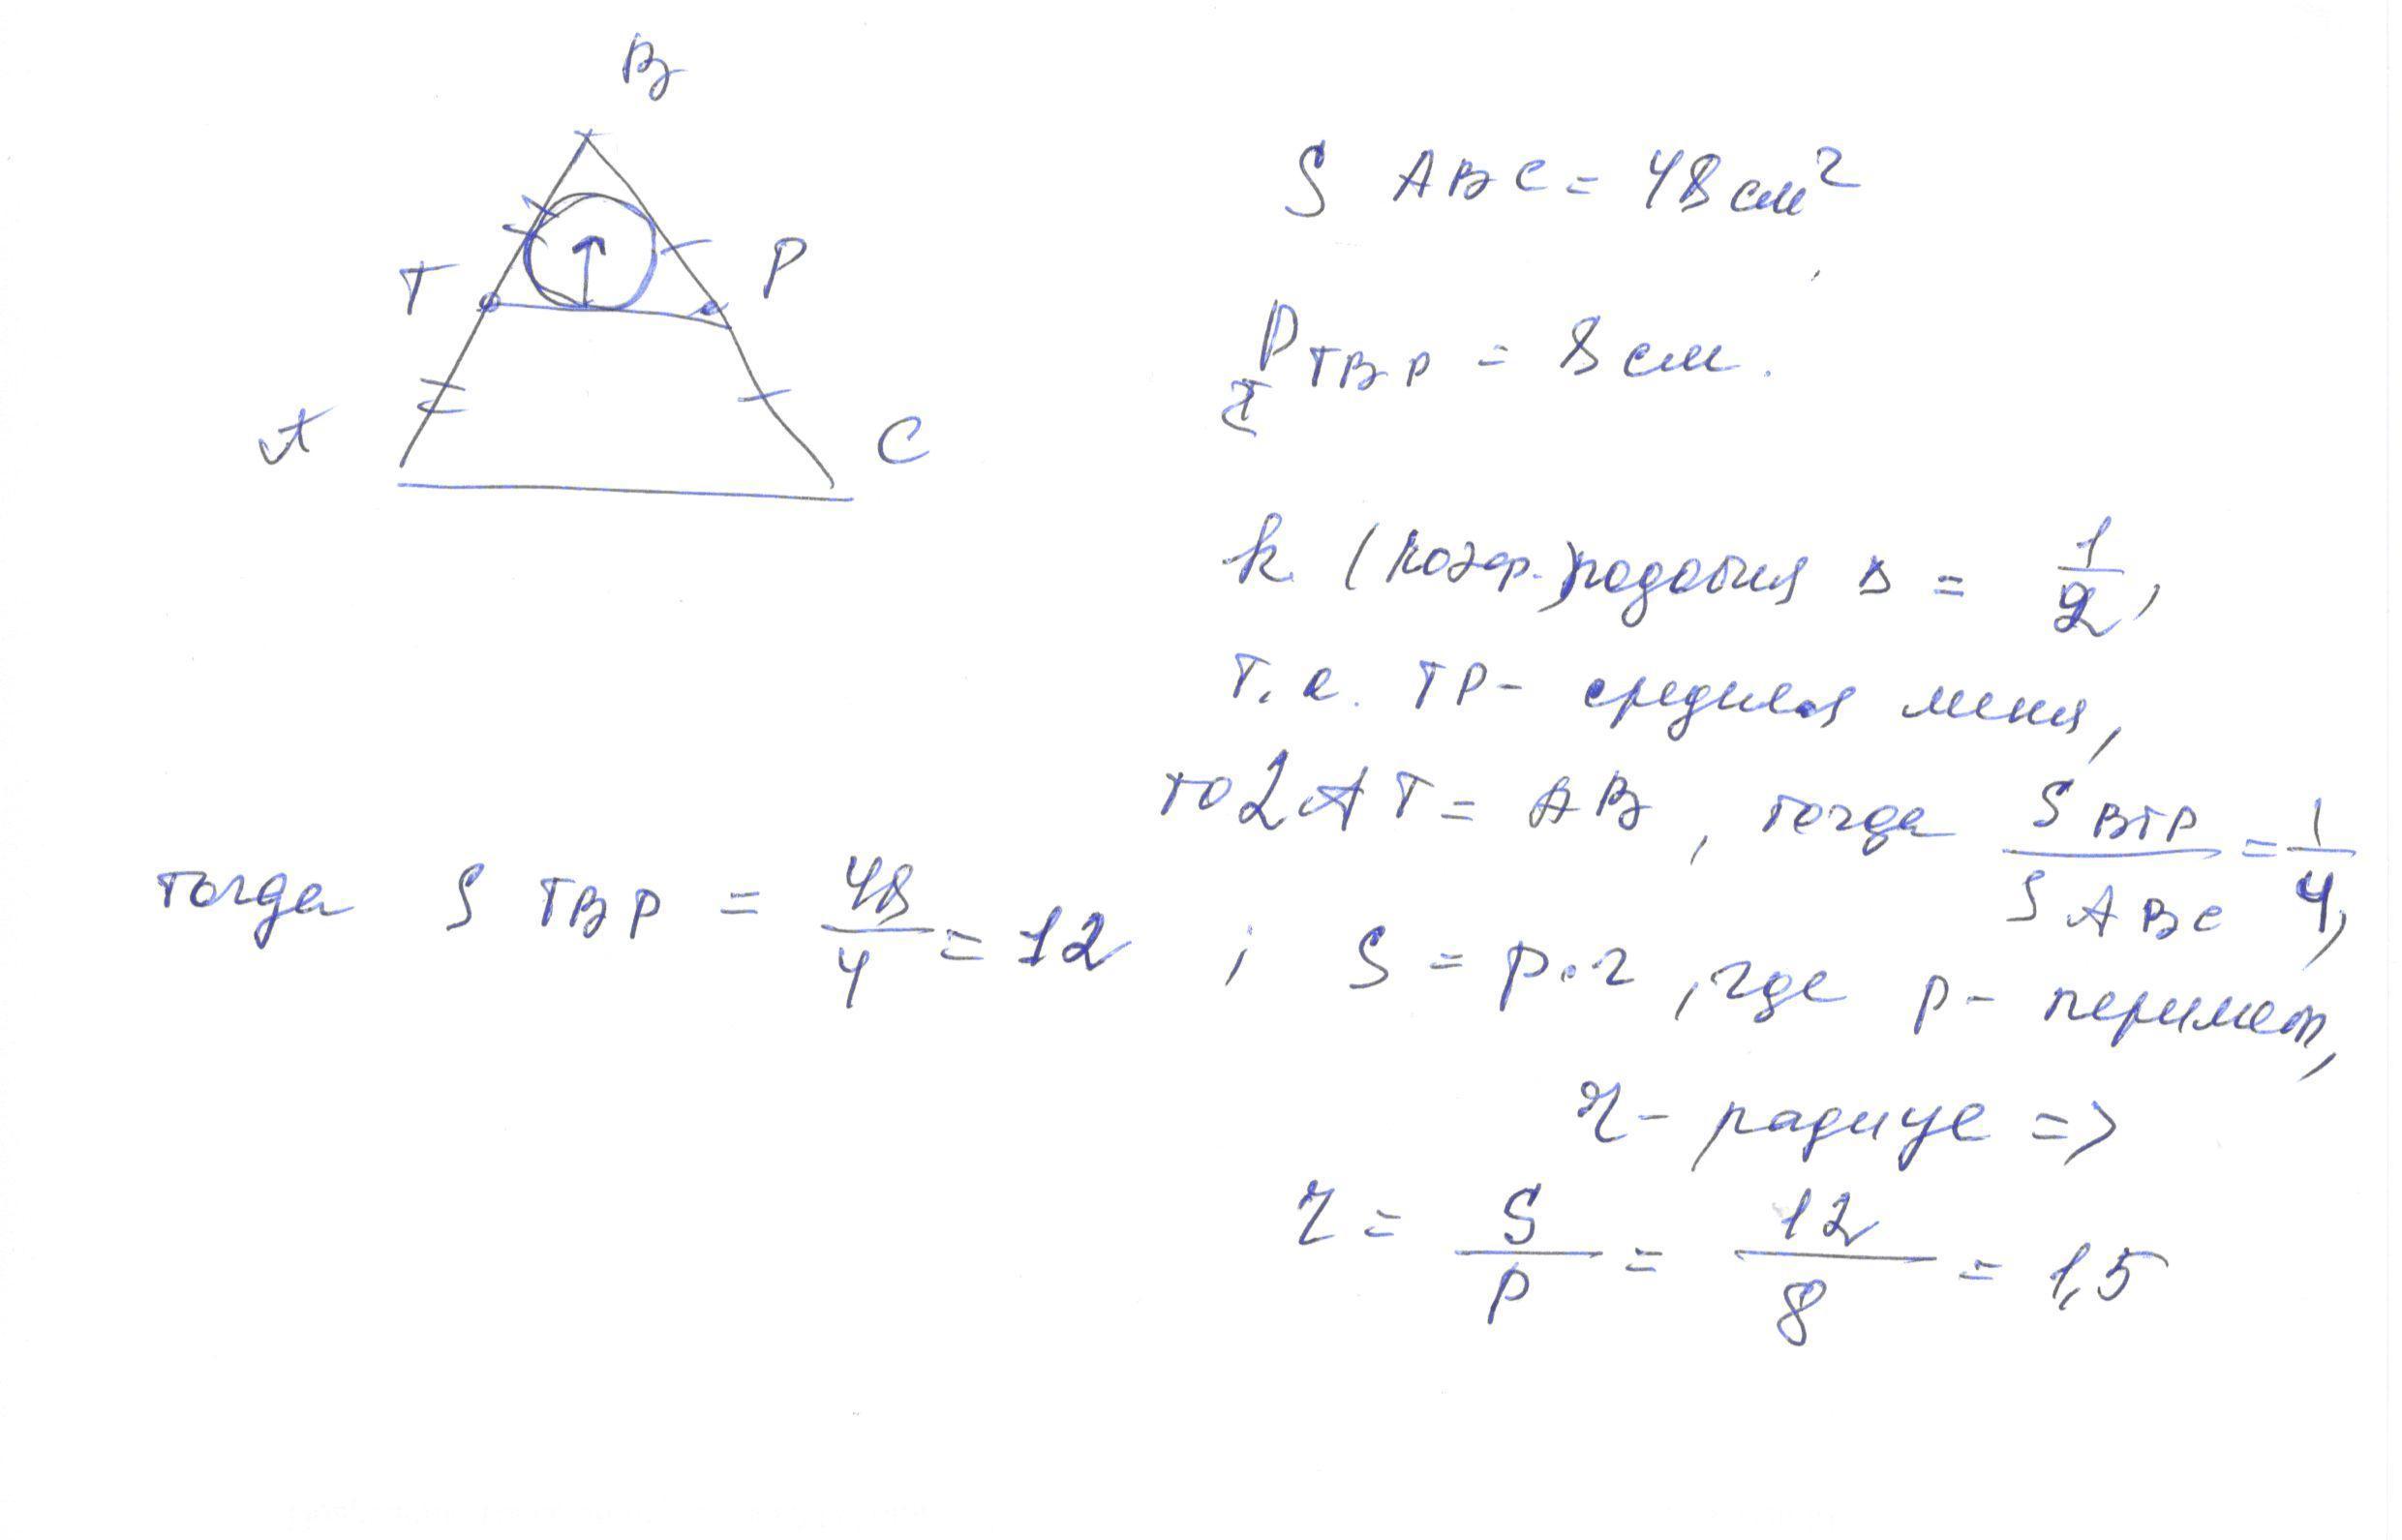 B
T
P
A
C
S ABC = 48 см²
P TBP = 8 см.
k (коэф.) подобия Δ = 1/2,
т.е. TP - средняя линия,
то 2AT = AB, тогда S BTP / S ABC = 1/4,
тогда S TBP = 48/4 = 12 ; S = p·r, где p - перимет,
r - радиус =>
r = S/P = 12/8 = 1,5